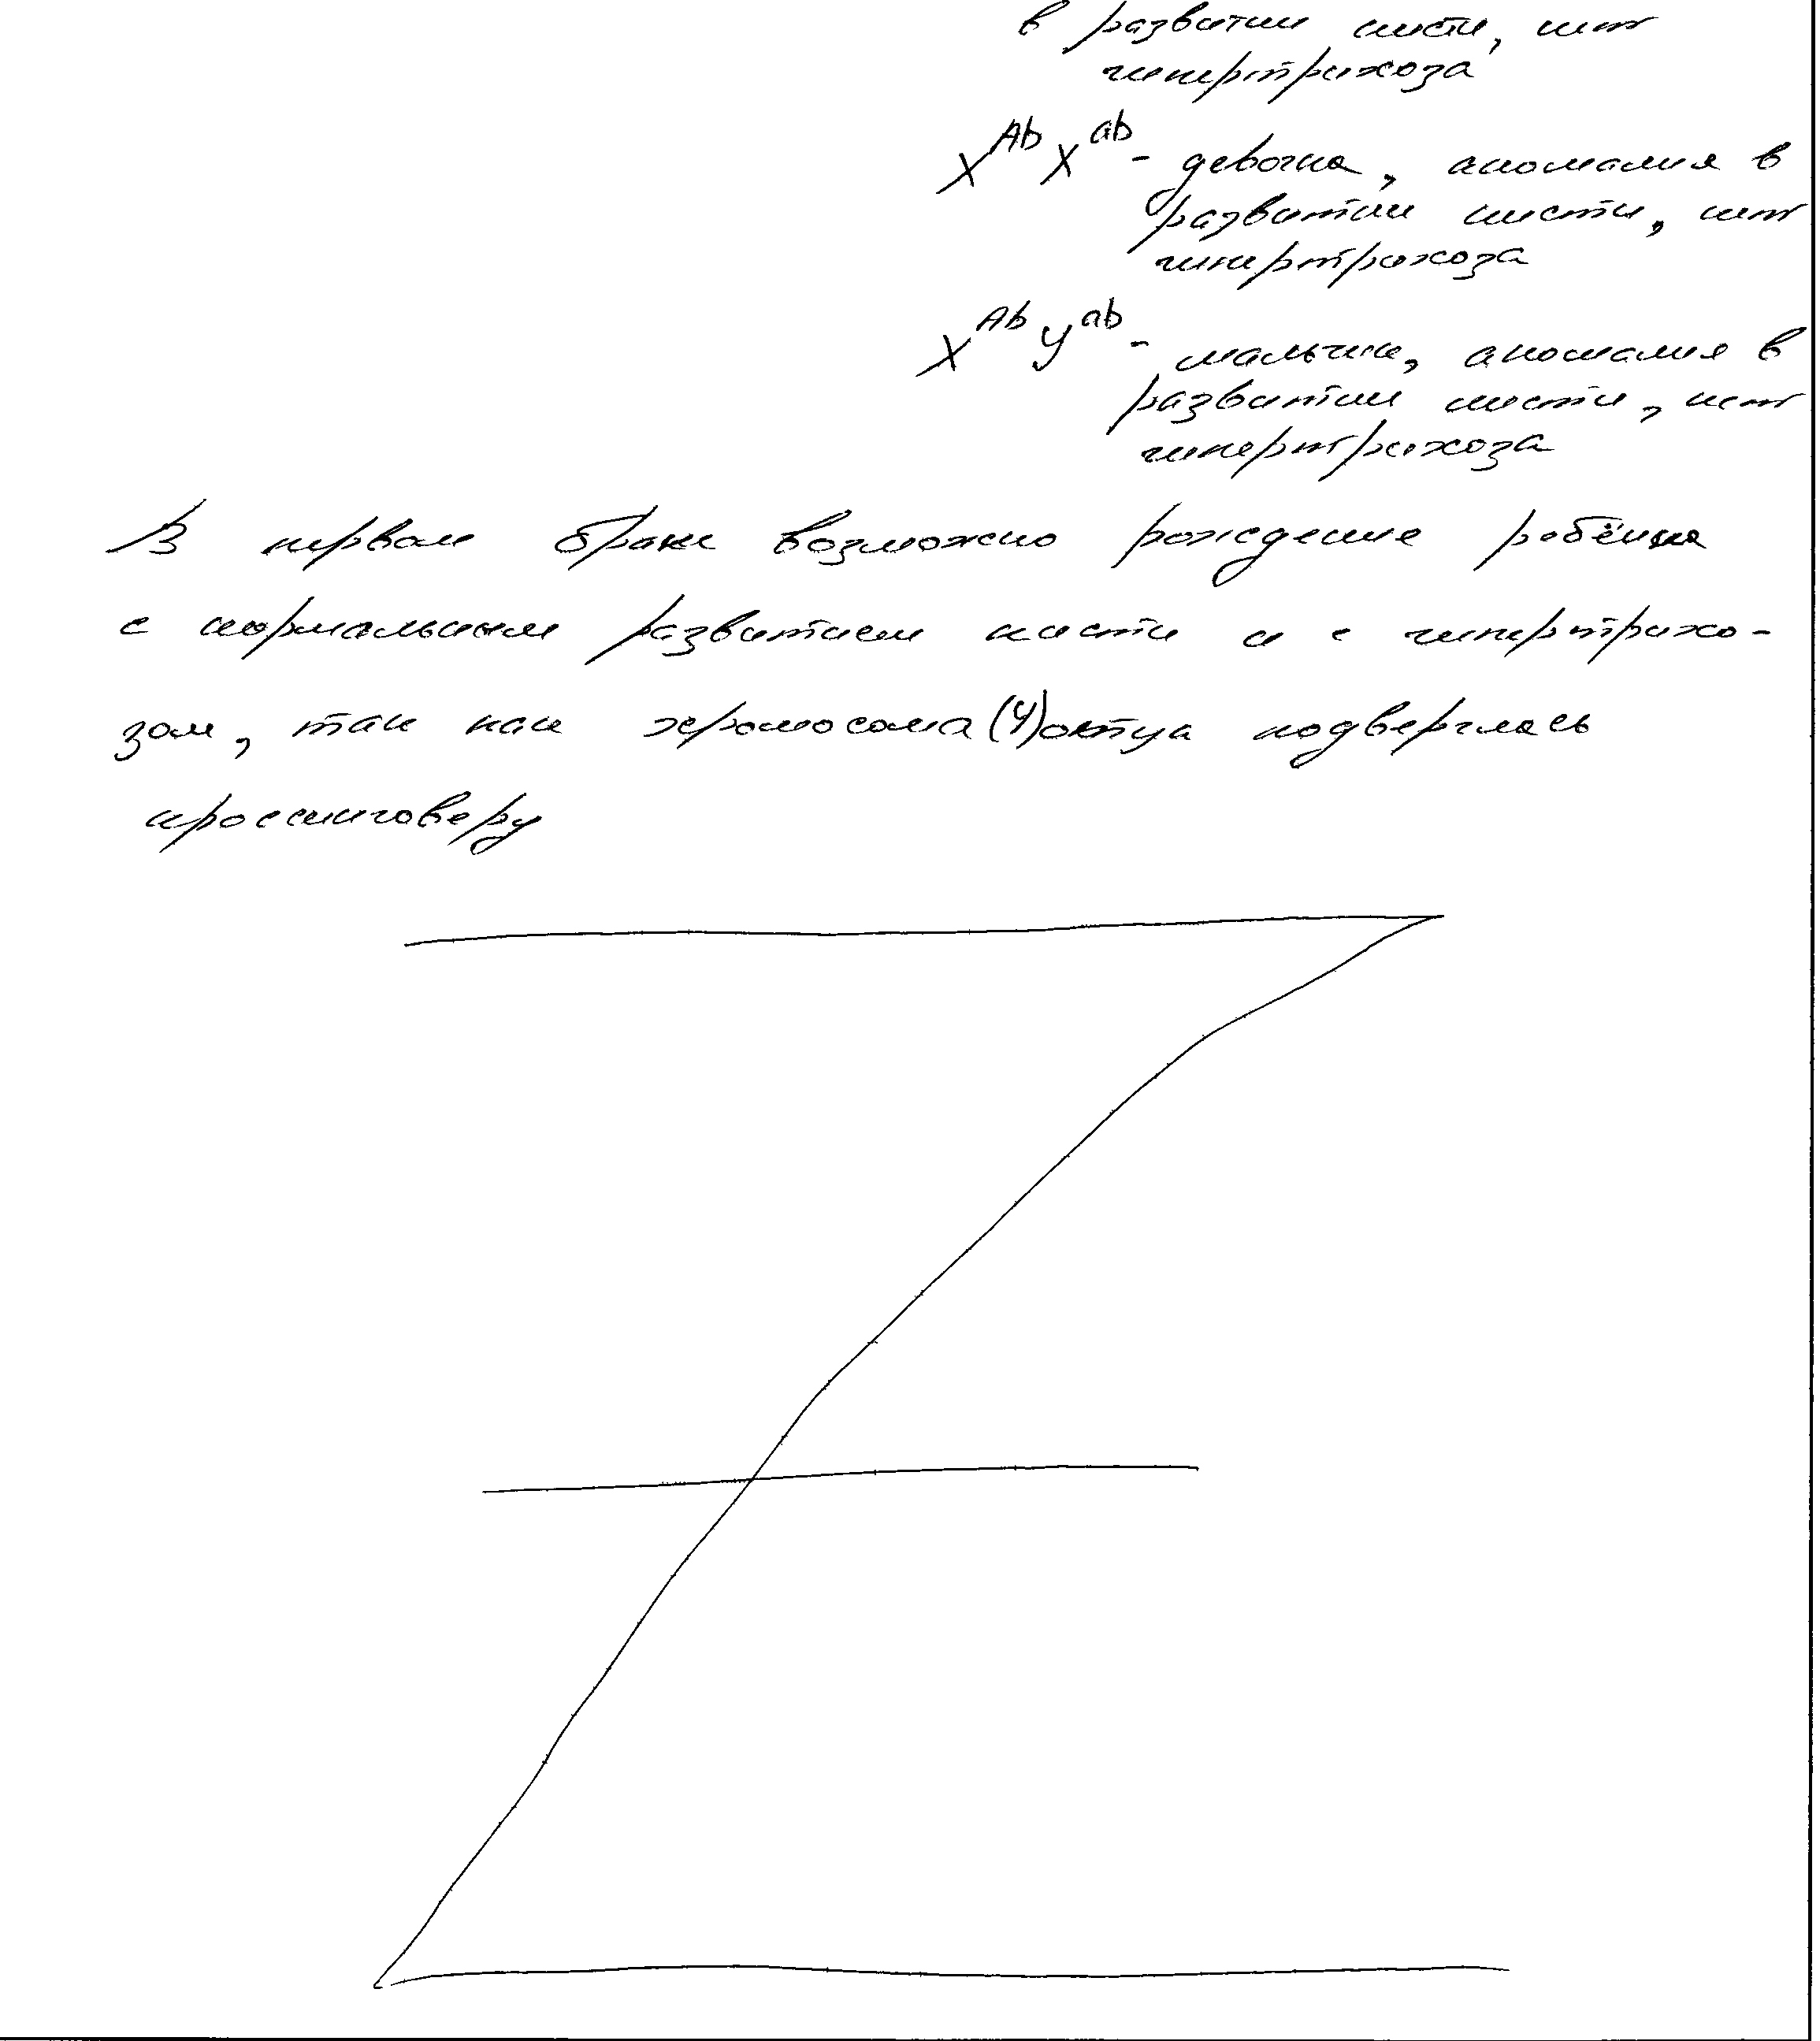 в развитии кисти, нет
гипертрихоза
X^Ab X^ab - девочка, аномалия в
развитии кисти, нет
гипертрихоза
X^Ab У^ab - мальчик, аномалия в
развитии кисти, нет
гипертрихоза
В первом браке возможно рождение ребёнка
с нормальным развитием кисти и с гипертрихо-
зом, так как хромосома (У) отца подверглась
кроссинговеру